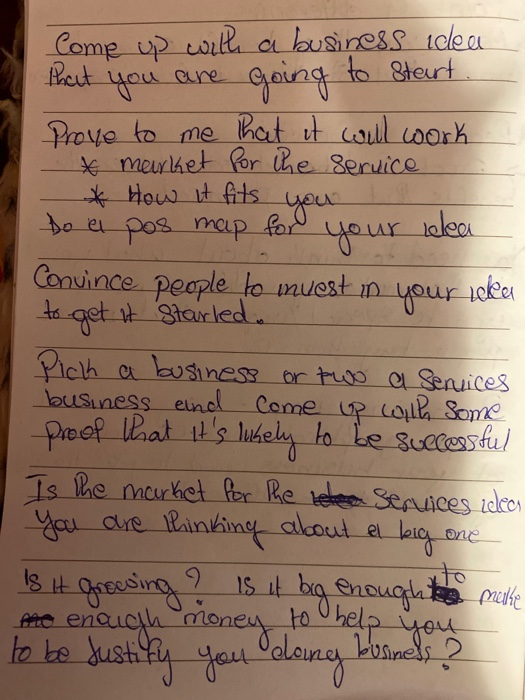 Come up with a business idea
that you are going to start.
Prove to me that it will work
* market for the service
* How it fits you
Do a pos map for your idea
Convince people to invest in your idea
to get it started.
Pick a business or two a services
business and come up with some
proof that it's likely to be successful
Is the market for the services idea
you are thinking about a big one
Is it growing? Is it big enough to make
enough money to help you
to be Justify you doing business?